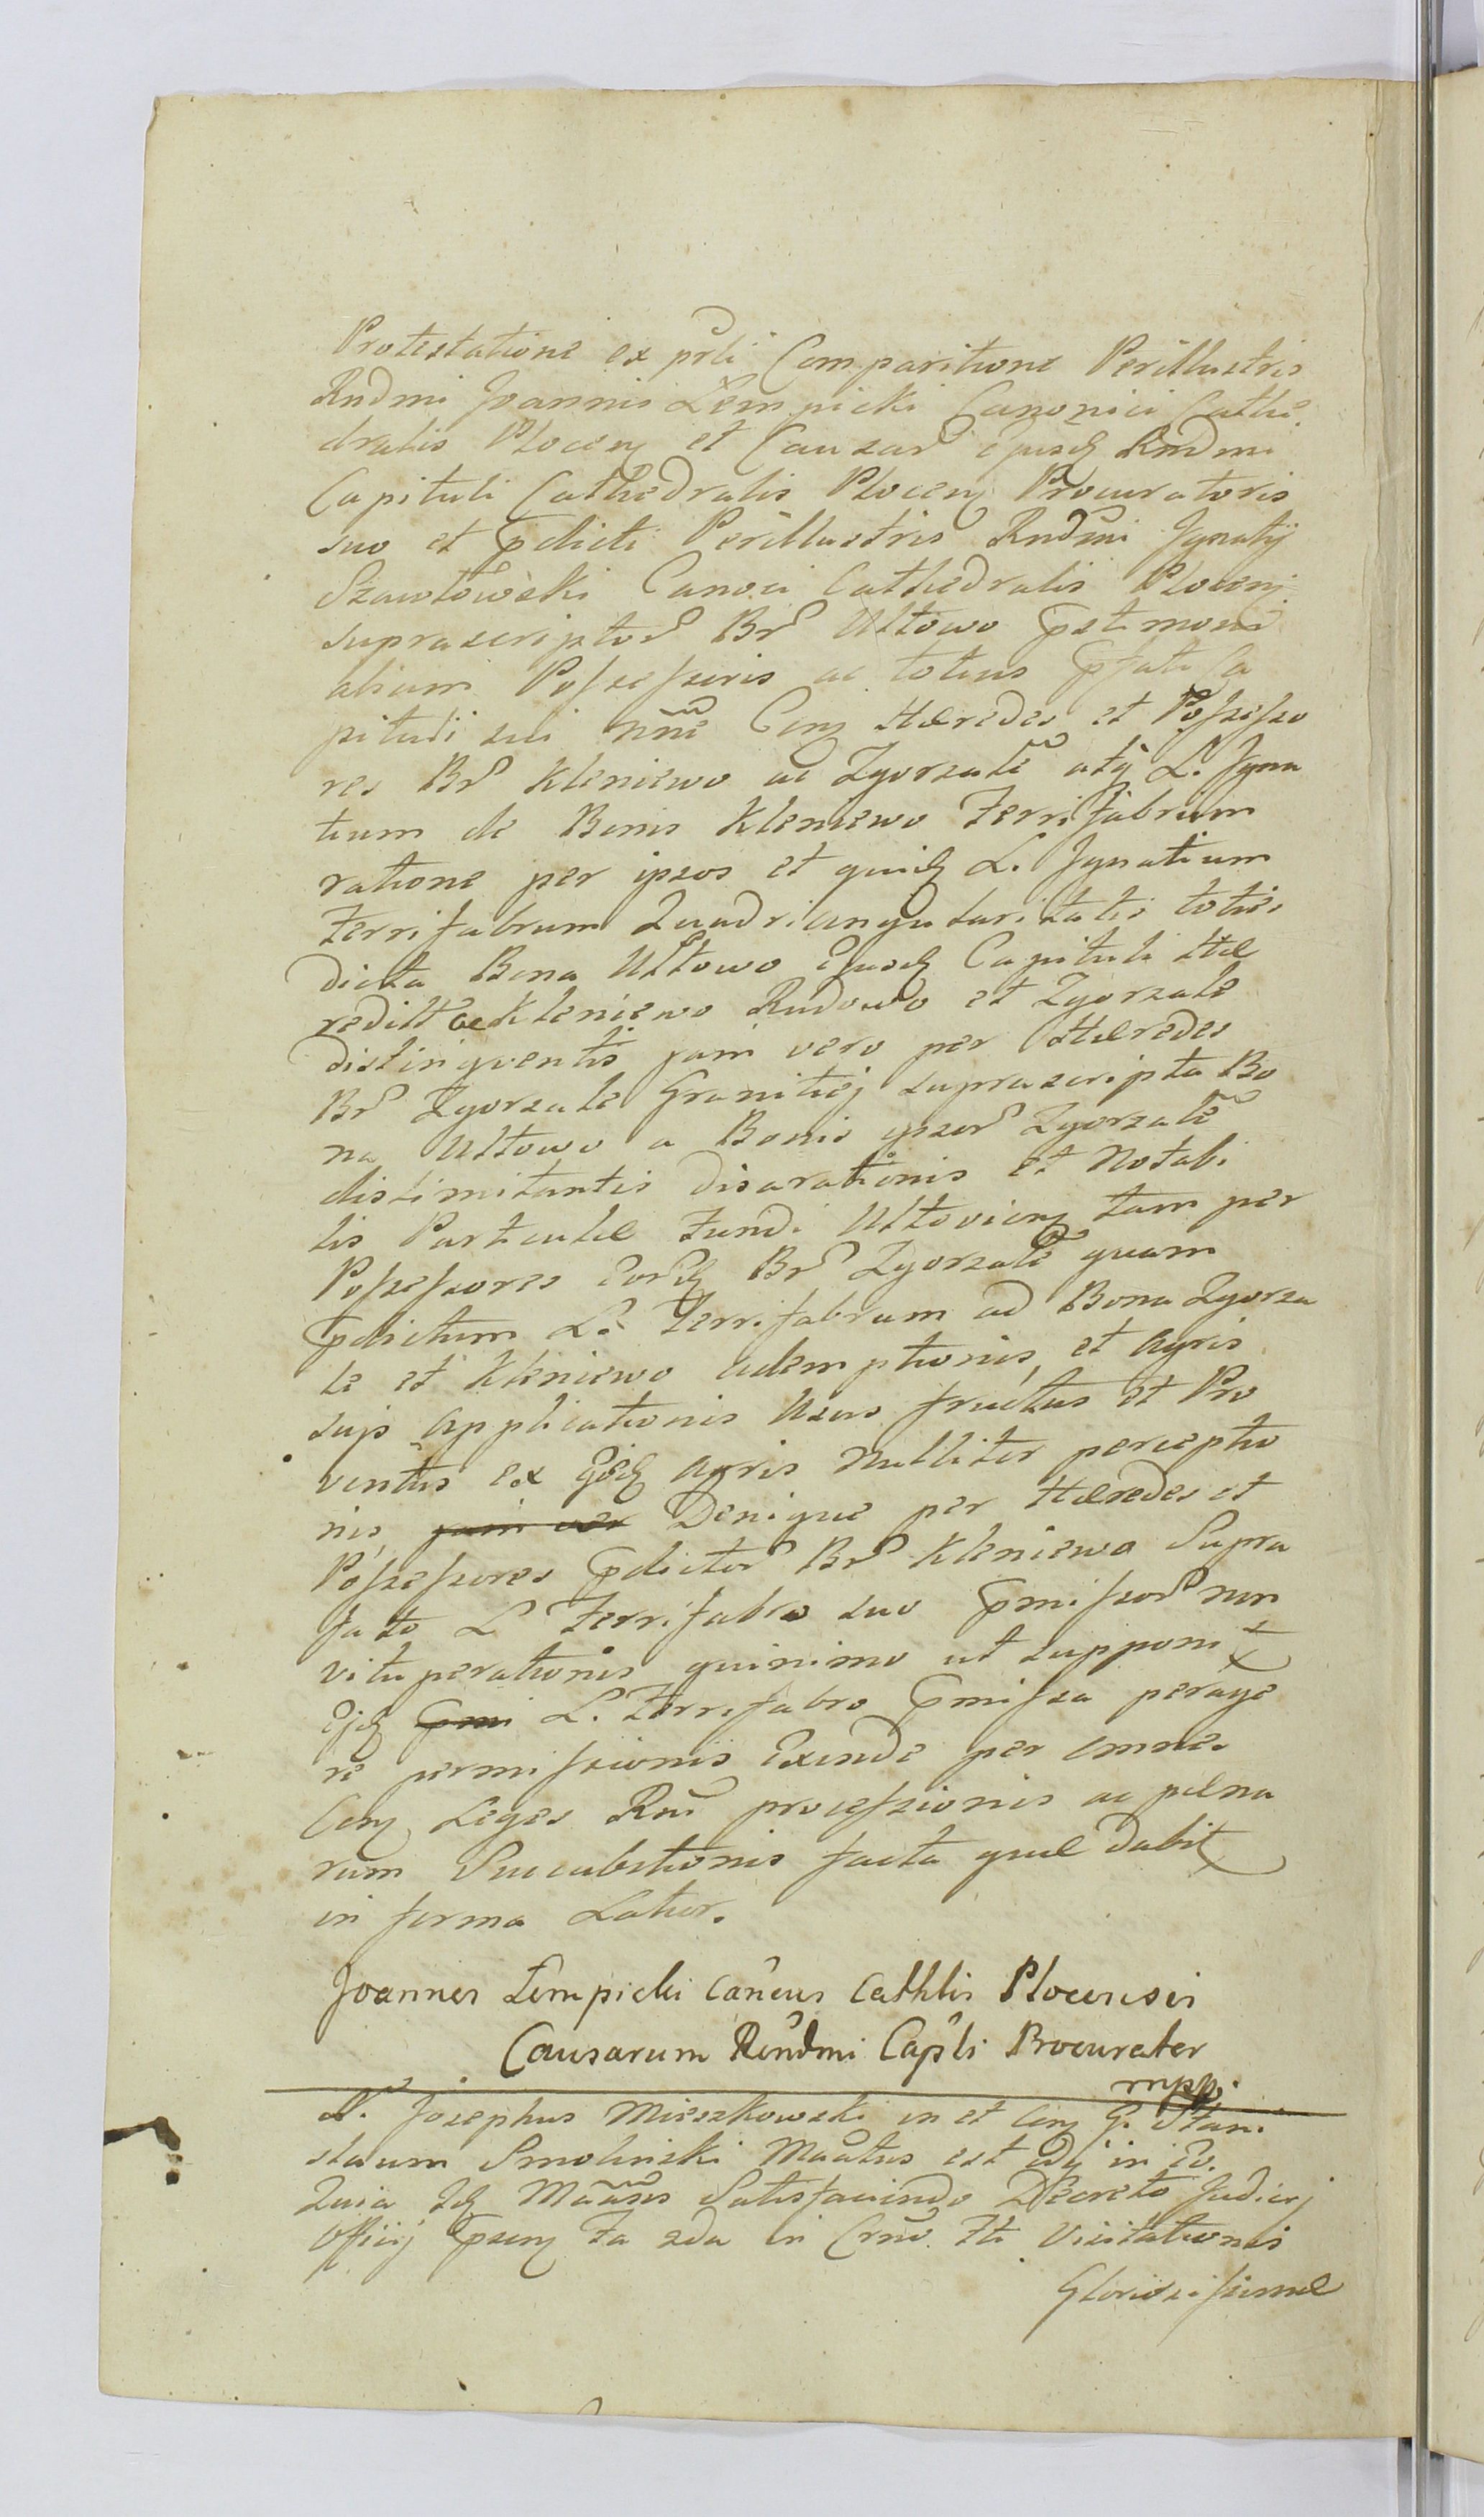 Protestatione ex prli Comparitione Perillustris
Rndmi Joannis Łempicki Canonici Cathe
dralis Plocen et Causar ejusd Rndmi
Capituli Cathedralis Plocen Procuratoris
suo et pdicti Perillustris Rndmi Ignatij
Szawłowski Canoci Cathedralis Plocen
suprascriptor Br Ułtowo
alium Possessoris ac totius pfati Ca
pituli sui nne Con Hæredes et Possesso
res Br Kleniewo ac Zgorzałe atq L. Igna
tium de Bonis Kleniewo Ferrifabrum
ratione per ipsos et quid L. Ignatium
Ferrifabrum Quadriangularitatis toties
dicta Bona Ułtowo Ejusd Capituli Hæ
reditt ac Kleniewo Rudowo et Zgorzałe
distingventis jam vero per Hæredes
Br Zgorzałe Granitiej suprascripta Bo
na Ułtowo a Bonis ipsor Zgorzałe
dislimitantis disarationis et Notabi
lis Particulæ Fundi Ułtovien tam per
Possessores Eord Br Zgorzałe quam
pdictum L. Ferrifabrum ad Bona Zgorza
łe et Kleniewo ademptionis et agris
suis applicationis Usus fructus et Pro
ventus ex agris nulliter perceptio
nis, jam ver Denique per Hæredes et
Possessores pdictor Br Kleniewo Supra
fato L Ferrifabro suo pmissor non
vituperationis quinimo ut supponit
Ejd pmi L. Ferrifabro pmissa perage
re permissionis Exinde per omnes
Con Leges Rni processionis ac pæna
rum Succubitionis facta quæ dabit
in forma Latior.
Joannes Łempicki Cancus Cathlis Plocensis
Causarum Rendmi Capli Procurator
mpp.
N. Josephus Mieszkowski in et Con G. Stani
slaum Smolinski Maatus est adj in Eo.
Quia Id Satisfaciendo Decreto Judicij
Officij psen Fa 2da in Crno Fti Visitationis
Gloriosissimæ